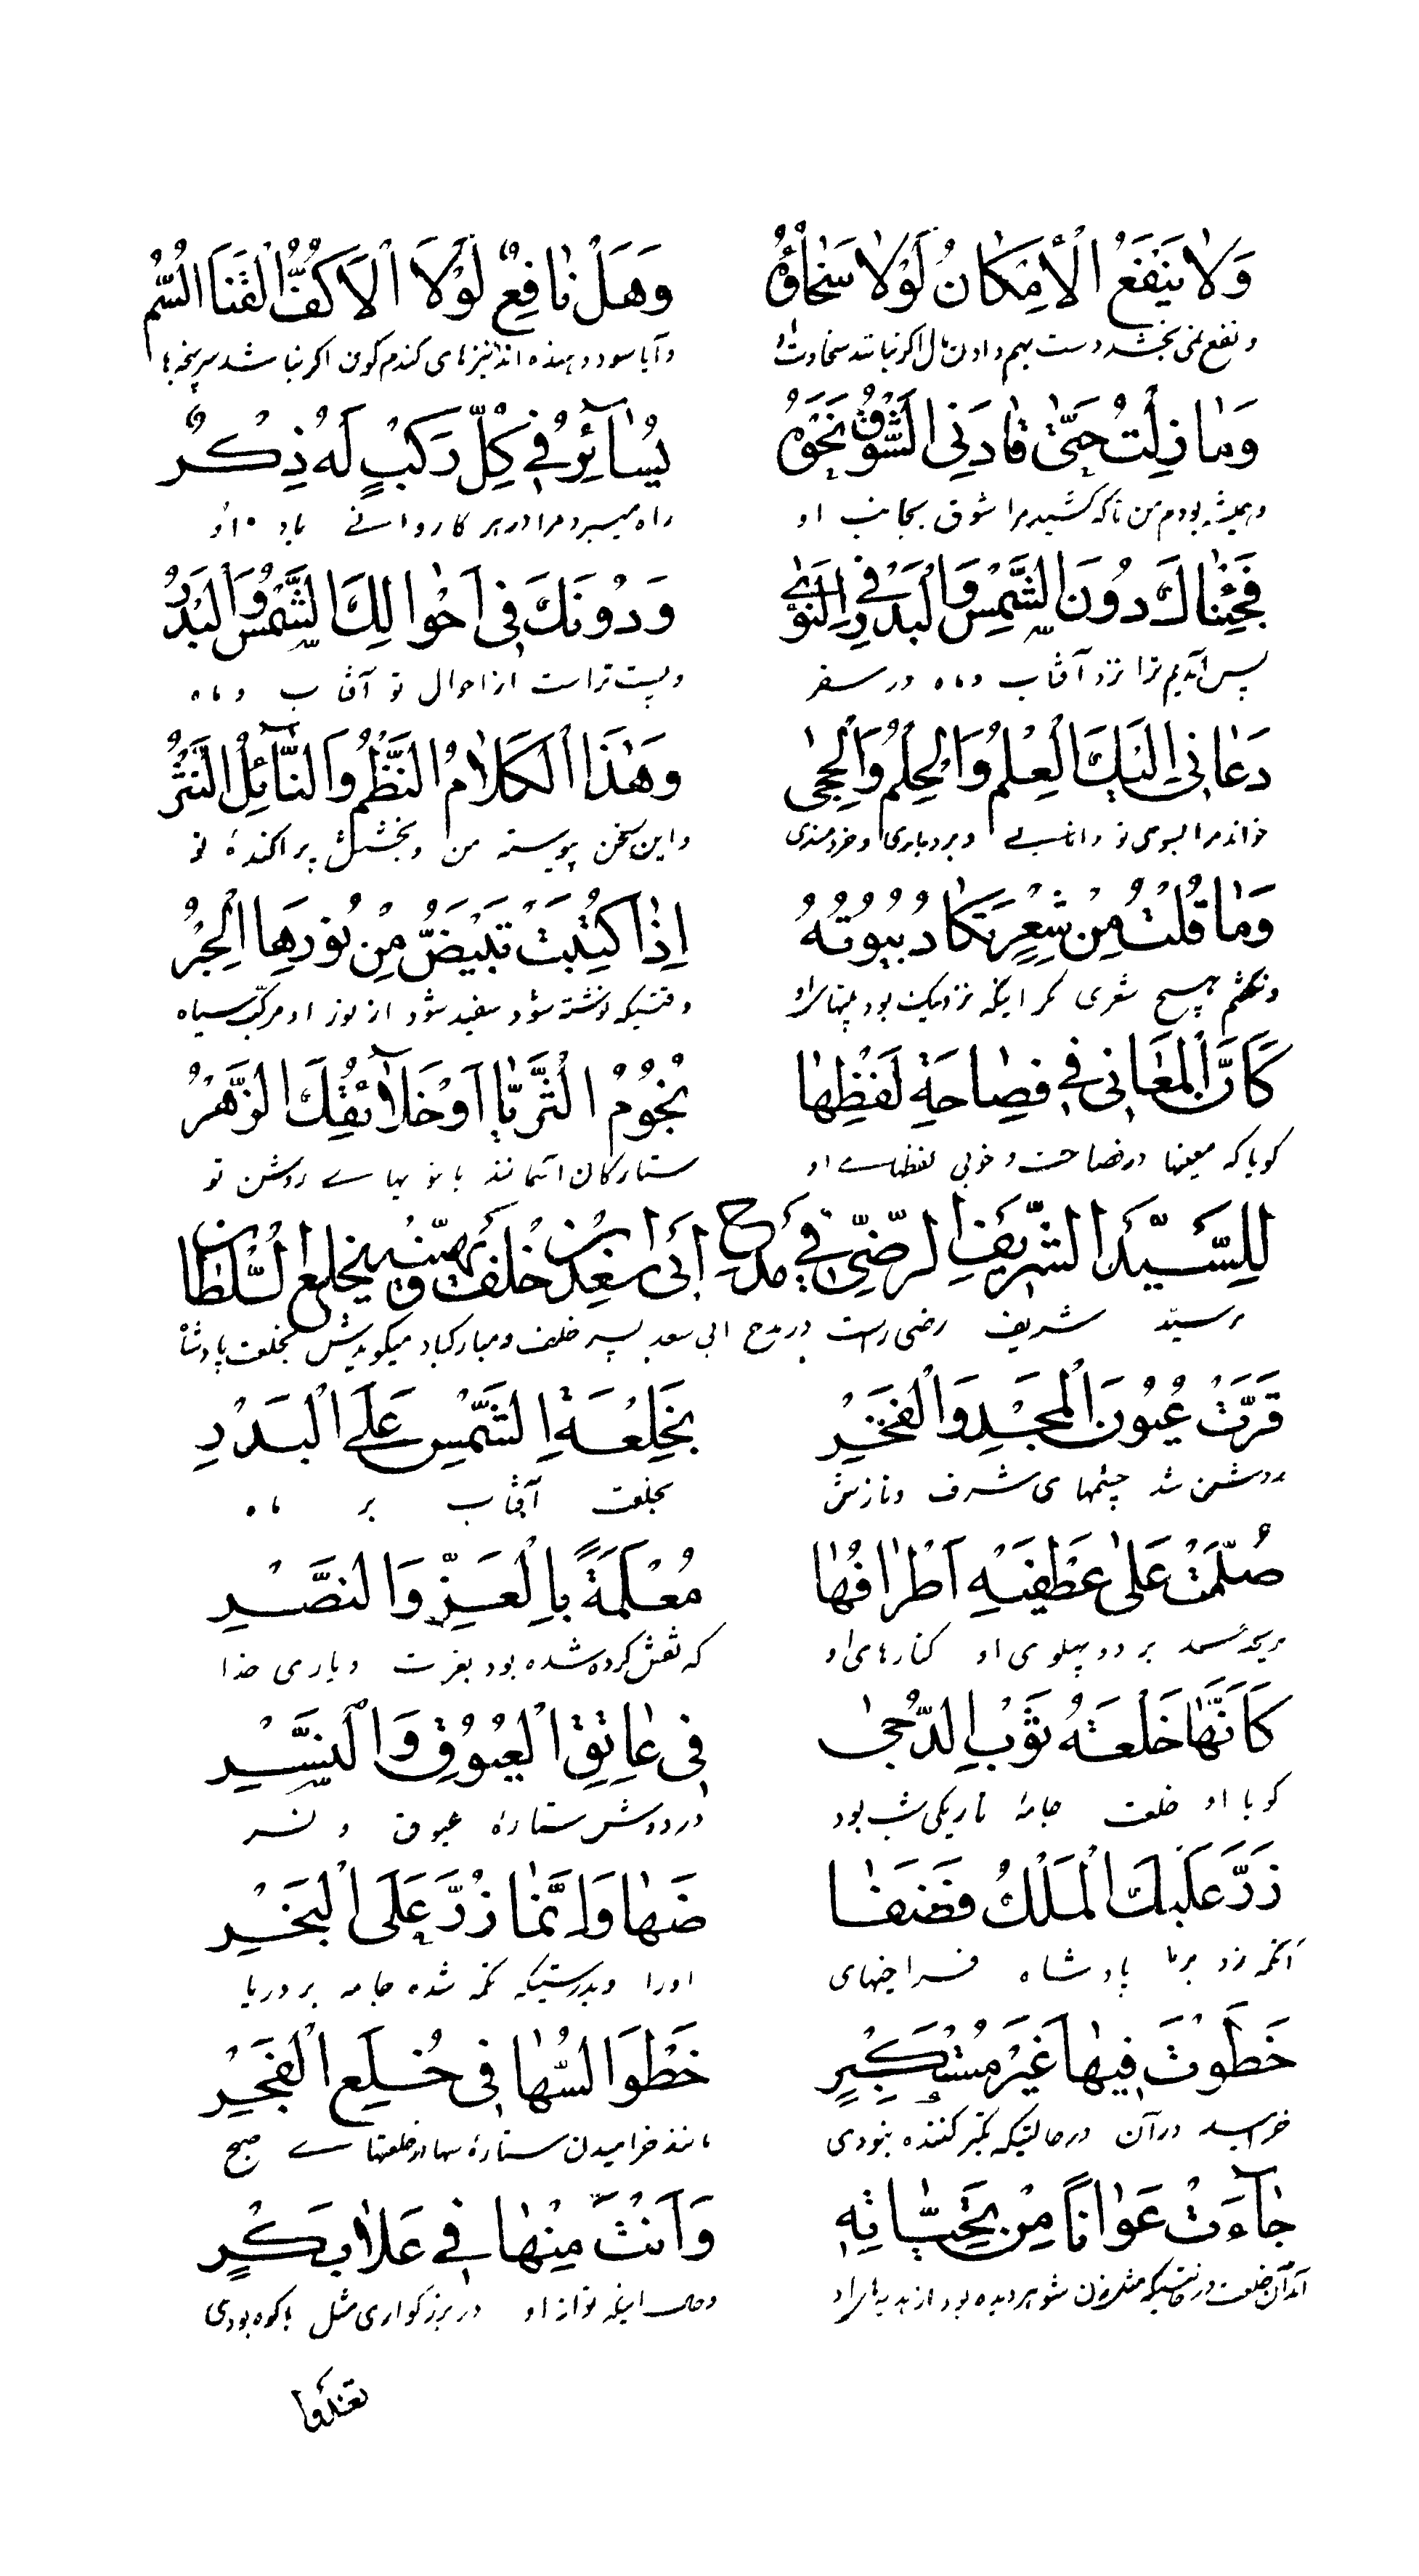 وَلَا يَنْفَعُ الْأِمْكَانُ لَوْلَا سَخَاؤُهُ وَهَلْ نَافِعٌ لَوْلَا الْاَكُفُّ الْقَنَا السُّمْرُ
و نفع نمی بخشد دست بهم دادن مال اکر نباشد سخاوت او و آیا سود دهنده اند نیزهای کندم کون اکر نباشد سرپنجه ها
وَمَا زِلْتُ حَتّىٰ قَادَنِى الشَّوْقُ نَحْوَهُ يُسَآئِرُنِى فِي كِلِّ رَكْبٍ لَهُ ذِكْرٌ
و همیشه بودم من تا که کشید مرا شوق بجانب او راه میبرد مرا در هر کاروانے یاد او
فَجِئْنَاكَ دُونَ الشَّمْسِ وَالْبَدْرِ فِي النَّوىٰ وَدُونَكَ فِى اَحْوَالِكَ الشَّمْسُ وَالْبَدْرُ
پس آمدیم ترا نزد آفتاب و ماه در سفر و پست تراست از احوال تو آفتاب و ماه
دَعَانِى اِلَيْكَ الْعِلْمُ وَالْحِلْمُ وَالْحِجىٰ وَهٰذَا الْكَلَامُ النَّظْمُ وَالنَّآئِلُ النَّثْرُ
خواند مرا بسوی تو دانائے و بردباری و خردمندی و این سخن پیوسته من و بخشش پراکندۀ تو
وَمَا قُلْتُ مِنْ شِعْرٍ تَكَادُ بُيُوتُهُ اِذَا كُتِبَتْ تَبْيَضُّ مِنْ نُورِهَا الْحِبْرُ
و نگفتم هیچ شعری مکر اینکه نزدیک بود بیتهای او وقتیکه نوشته شود سفید شود از نور او مرکب سیاه
كَاَنَّ الْمَعَانِى فِي فَصَاحَةِ لَفْظِهَا نُجُوُمُ الثُّرَيَّا اَوْ خَلَآئِقُكَ الزُّهْرُ
کویا که معنیها در فصاحت و خوبی لفظهاے او ستارکان آسمانند یا خویهاے روشن تو
لِلسَّيِّدِ الشَّرِيفِ الرَّضِىِّ فِي مَدْحِ اَبِى سَعْدِ بْنِ خَلَفٍ وَيُهَنِّيهِ بِخِلَعِ السُّلْطَانِ
مر سیّد شریف رضی راست در مدح ابی سعد پسر خلف و مبارکباد میکویدش بخلعت پادشاه
قَرَّتْ عُيُونُ الْمَجْدِ وَالْفَخْرِ بِخِلْعَةِ الشَّمْسِ عَلَى الْبَدْرِ
روشن شد چشمهای شرف و نازش بخلعت آفتاب بر ماه
صُلّمَتْ عَلىٰ عَطْفَيْهِ اَطْرَافُهَا مُعْلَمَةً بِالْعِزِّ وَالنَّصْرِ
بر دو پهلوی او کنارهای او که نقش کرده شده بود بعزت و یاری خدا
كَاَنَّهَا خَلْعَةُ ثَوْبِ الدُّجىٰ فِى عَاتِقِ الْعَيُّوقِ وَالنَّسْرِ
کویا او خلعت جامۀ تاریکی شب بود در دوش ستارۀ عیوق و نسر
زَرَّ عَلَيْكَ الْمَلْكُ فَضْفَا ضَهَا وَاِنَّمَا زُرَّ عَلَى الْبَحْرِ
تکمه زد بر ما پادشاه فراخیهای او را و بدرستیکه تکمه شده جامه بر دریا
خَطَوْتَ فِيهَا غَيْرَ مُسْتَكْبِرٍ خَطْوَ السُّهَا فِى خُلَعِ الْفَجْرِ
خرامید در آن در حالتیکه تکبر کننده نبودی مانند خرامیدن ستارۀ سها در خلعتهاے صبح
جَآءَتْ عَوَانًا مِنْ تَحِيَّاتِهِ وَاَنْتَ مِنْهَا فِي عَلًا بَكْرٍ
آمد آن خلعت در حالتیکه مثل زن شوهر دیده بود از هدیه های او و حال اینکه تو از او در بزرکواری مثل باکره بودی